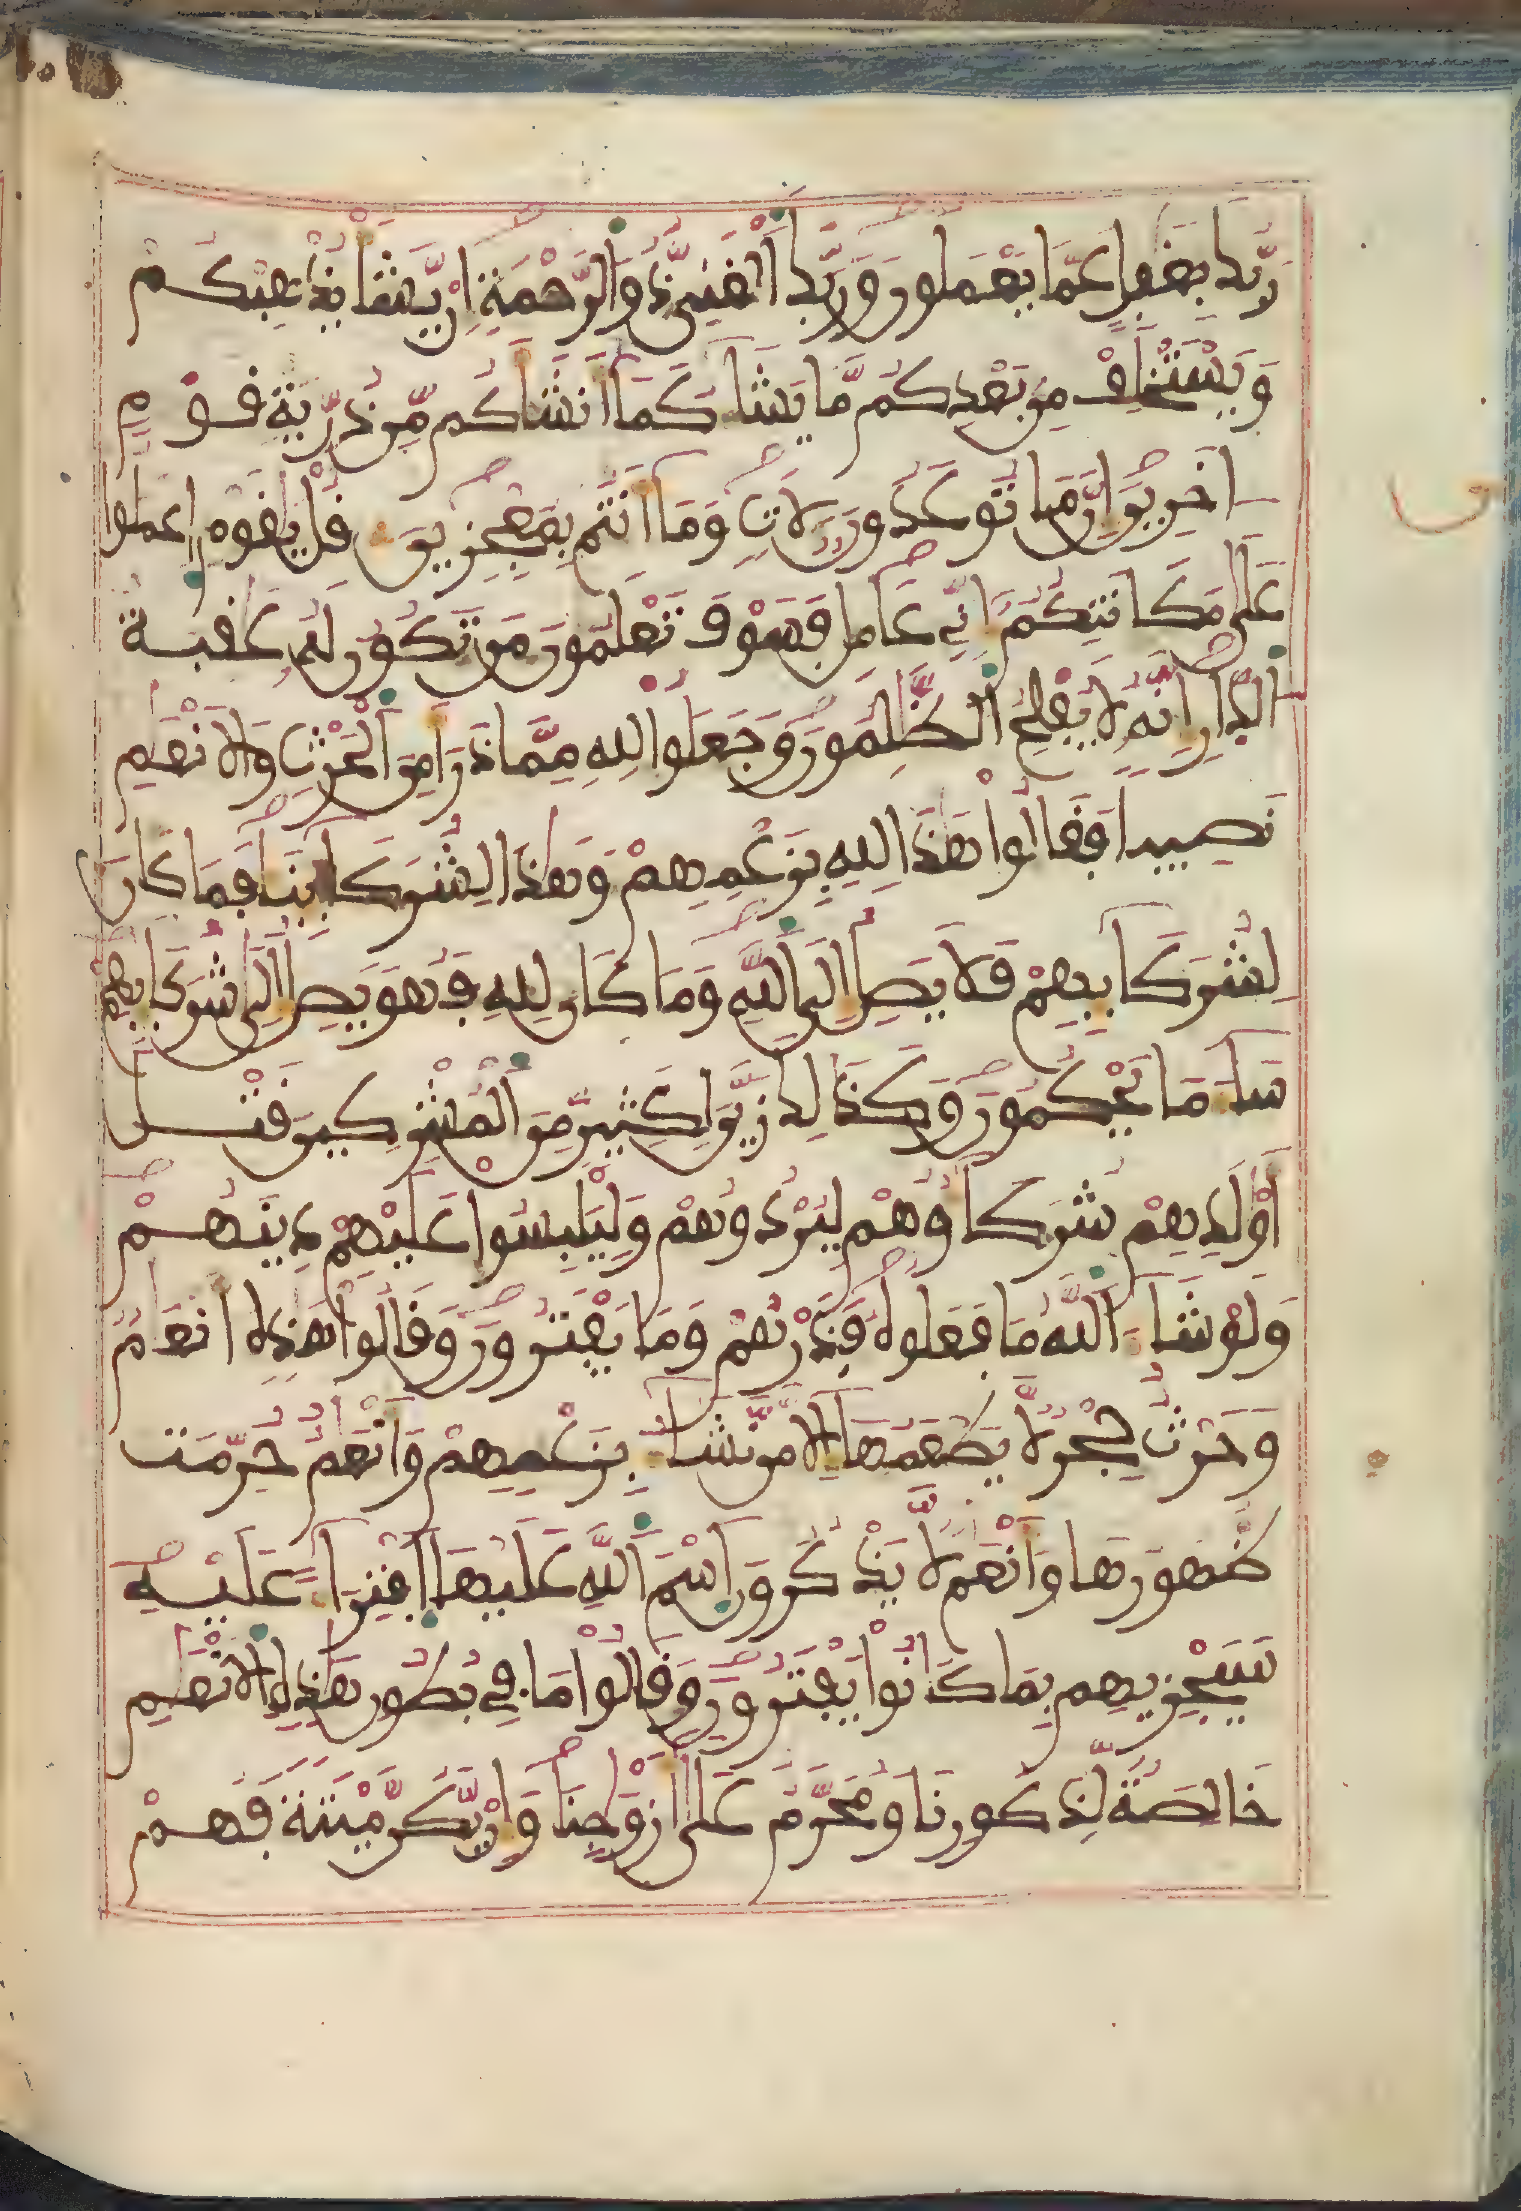 رَبُّكَ بِغَٰفِلٍ عَمَّا يَعْمَلُونَ وَرَبُّكَ اَ۬لْغَنِىُّ ذُو اُ۬لرَّحْمَةِ إِنْ يَّشَأْ يُذْهِبْكُمْ
وَيَسْتَخْلِفْ مِنۢ بَعْدِكُم مَّا يَشَآءُ كَمَآ أَنشَأَكُم مِّن ذُرِّيَّةِ قَوْمٍ
اٰخَرِينَ إِنَّ مَا تُوعَدُونَ لَأٓتٖ وَمَآ أَنتُم بِمُعْجِزِينَ قُلْ يَٰقَوْمِ اِ۪عْمَلُوا
عَلَىٰ مَكَانَتِكُمُۥٓ إِنِّى عَامِلٞ فَسَوْفَ تَعْلَمُونَ مَن تَكُونُ لَهُۥ عَٰقِبَةُ
اُ۬لدّ۪ارِ إِنَّهُۥ لَا يُفْلِحُ اُ۬لظَّٰلِمُونَ وَجَعَلُوا لِلهِ مِمَّا ذَرَأَ مِنَ اَ۬لْحَرْثِ وَالَانْعَٰمِ
نَصِيبا فَقَالُوا هَٰذَا لِلهِ بِزَعْمِهِمْ وَهَٰذَا لِشُرَكَآئِنَا فَمَا كَانَ
لِشُرَكَآئِهِمْ فَلَا يَصِلُ إِلَى اَ۬للَّهِ وَمَا كَانَ لِلهِ فَهُوَ يَصِلُ إِلَىٰ شُرَكَآئِهِمْ
سَآءَ مَا يَحْكُمُونَ وَكَذَٰلِكَ زَيَّنَ لِكَثِيرٖ مِّنَ اَ۬لْمُشْرِكِينَ قَتْلَ
أَوْلَٰدِهِمْ شُرَكَآؤُهُمْ لِيُرْدُوهُمْ وَلِيَلْبِسُوا عَلَيْهِمْ دِينَهُمْ
وَلَوْ شَآءَ اَ۬للَّهُ مَا فَعَلُوهُ فَذَرْهُمْ وَمَا يَفْتَرُونَ وَقَالُوا هَٰذِهِۦٓ أَنْعَٰمٞ
وَحَرْثٌ حِجْرٞ لَّا يَطْعَمُهَآ إِلَّا مَن نَّشَآءُ بِزَعْمِهِمْ وَأَنْعَٰمٌ حُرِّمَتْ
ظُهُورُهَا وَأَنْعَٰمٞ لَّا يَذْكُرُونَ اَ۪سْمَ اَ۬للَّهِ عَلَيْهَا اَ۪فْتِرَآءً عَلَيْهِ
سَيَجْزِيهِم بِمَا كَانُوا يَفْتَرُونَ وَقَالُوا مَا فِى بُطُونِ هَٰذِهِ اِ۬لَانْعَٰمِ
خَالِصَةٞ لِّذُكُورِنَا وَمُحَرَّمٌ عَلَىٰٓ أَزْوَٰجِنَا وَإِنْ يَّكُن مَّيْتَةٗ فَهُمْ